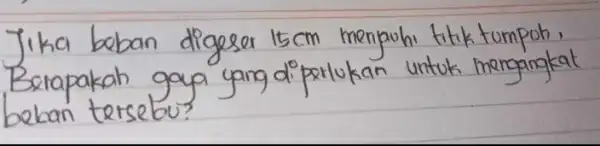 Jika beban digeser 15 cm menjauhi titik tumpoh,
Berapakah gaya yang diperlukan untuk mengangkat
beban tersebu?